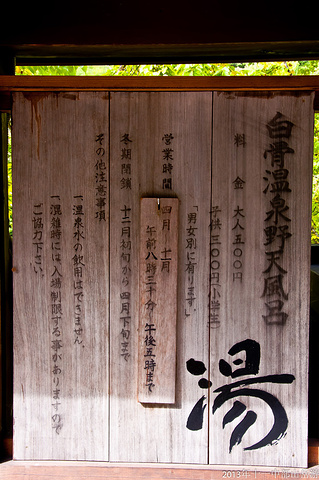 白骨温泉野天風呂
料金 大人五〇〇円
子供三〇〇円(小学生)
「男女別に有ります」
営業時間 四月 十一月
午前八時三十分 午後五時まで
冬期閉鎖 十二月初旬から四月下旬まで
その他注意事項
一 温泉水の飲用はできません。
一 混雑時には入場制限する事がありますので
ご協力下さい。
湯